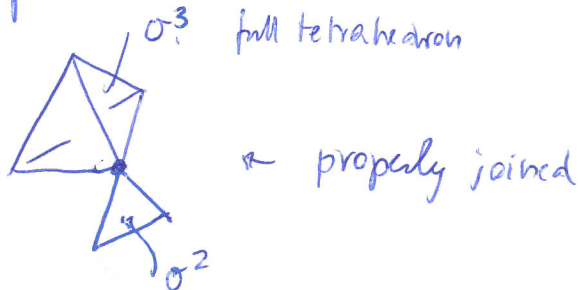 σ³ full tetrahedron
← properly joined
σ²